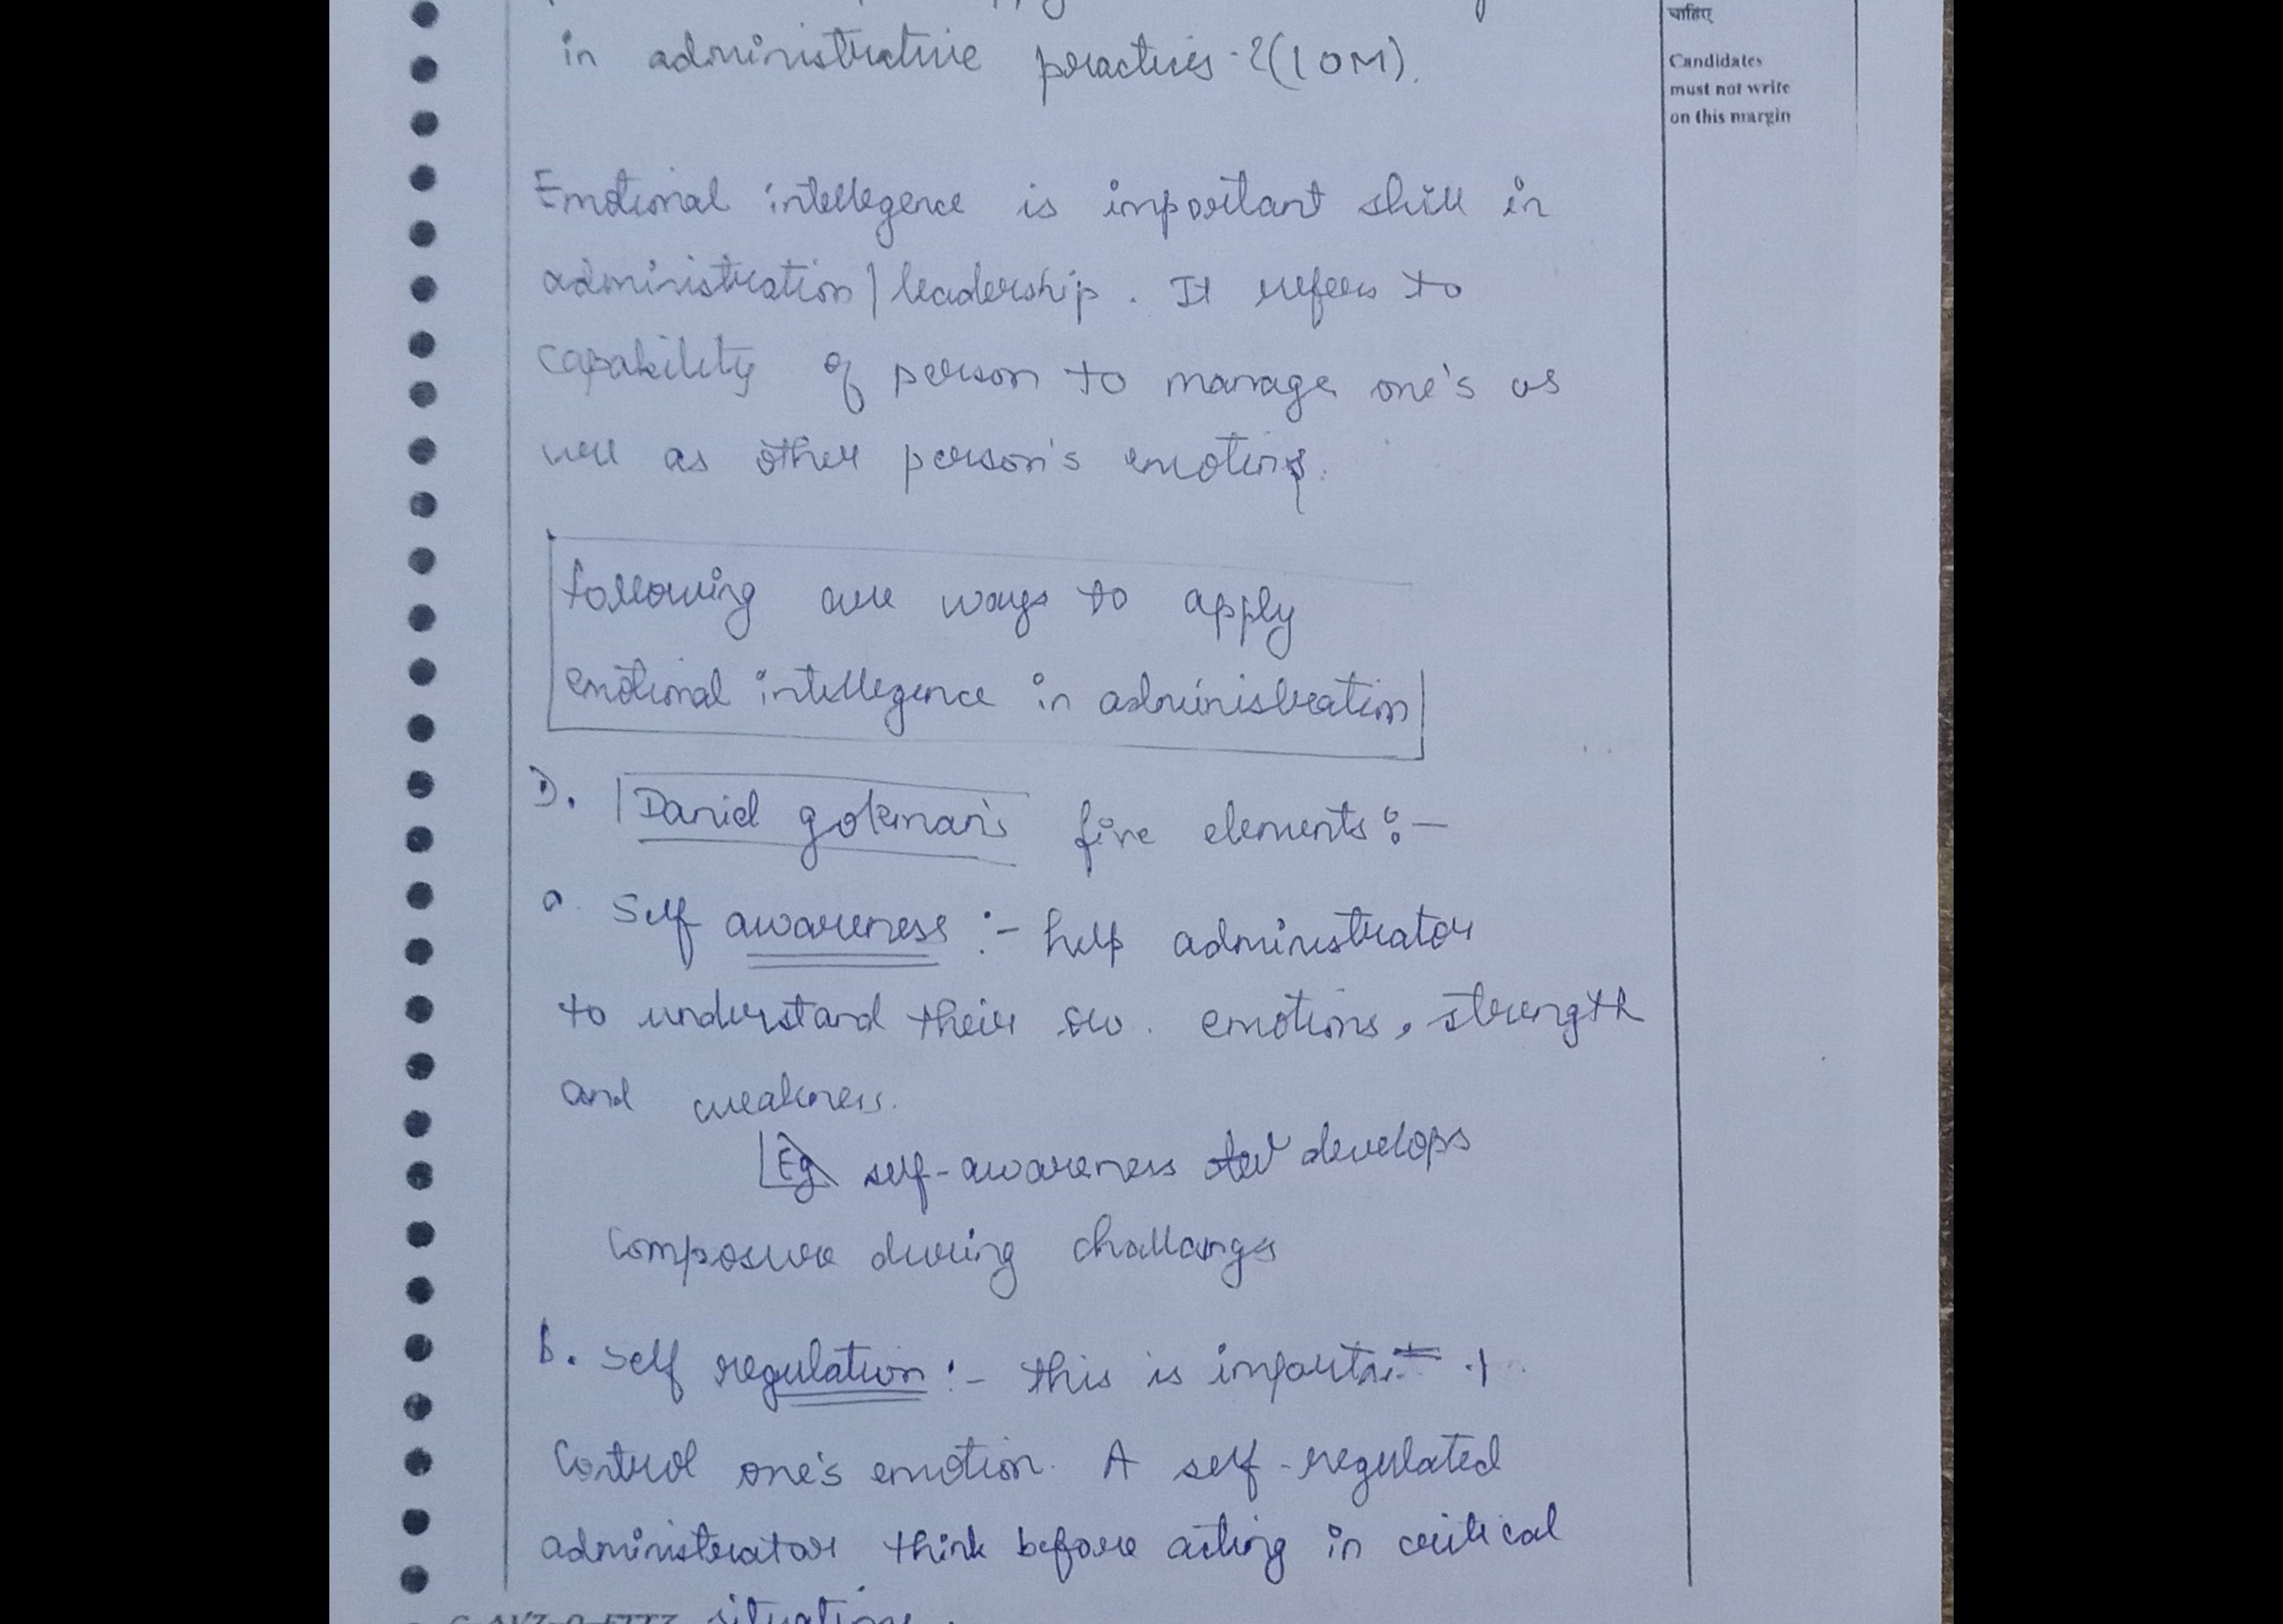 in administrative practices-?(10M).
चाहिए
Candidates
must not write
on this margin
Emotional intellegence is important skill in
administration/leadership. It refers to
capability of person to manage one's as
well as other person's emotions.
following are ways to apply
emotional intellegence in administration
1). Daniel goleman's five elements:-
a. Self awareness :- help administrator
to understand their ow. emotions, strength
and weakness.
Eg self-awareness develops
composure during challanges
b. Self regulation :- this is important
control one's emotion. A self-regulated
administrator think before acting in critical
situations.